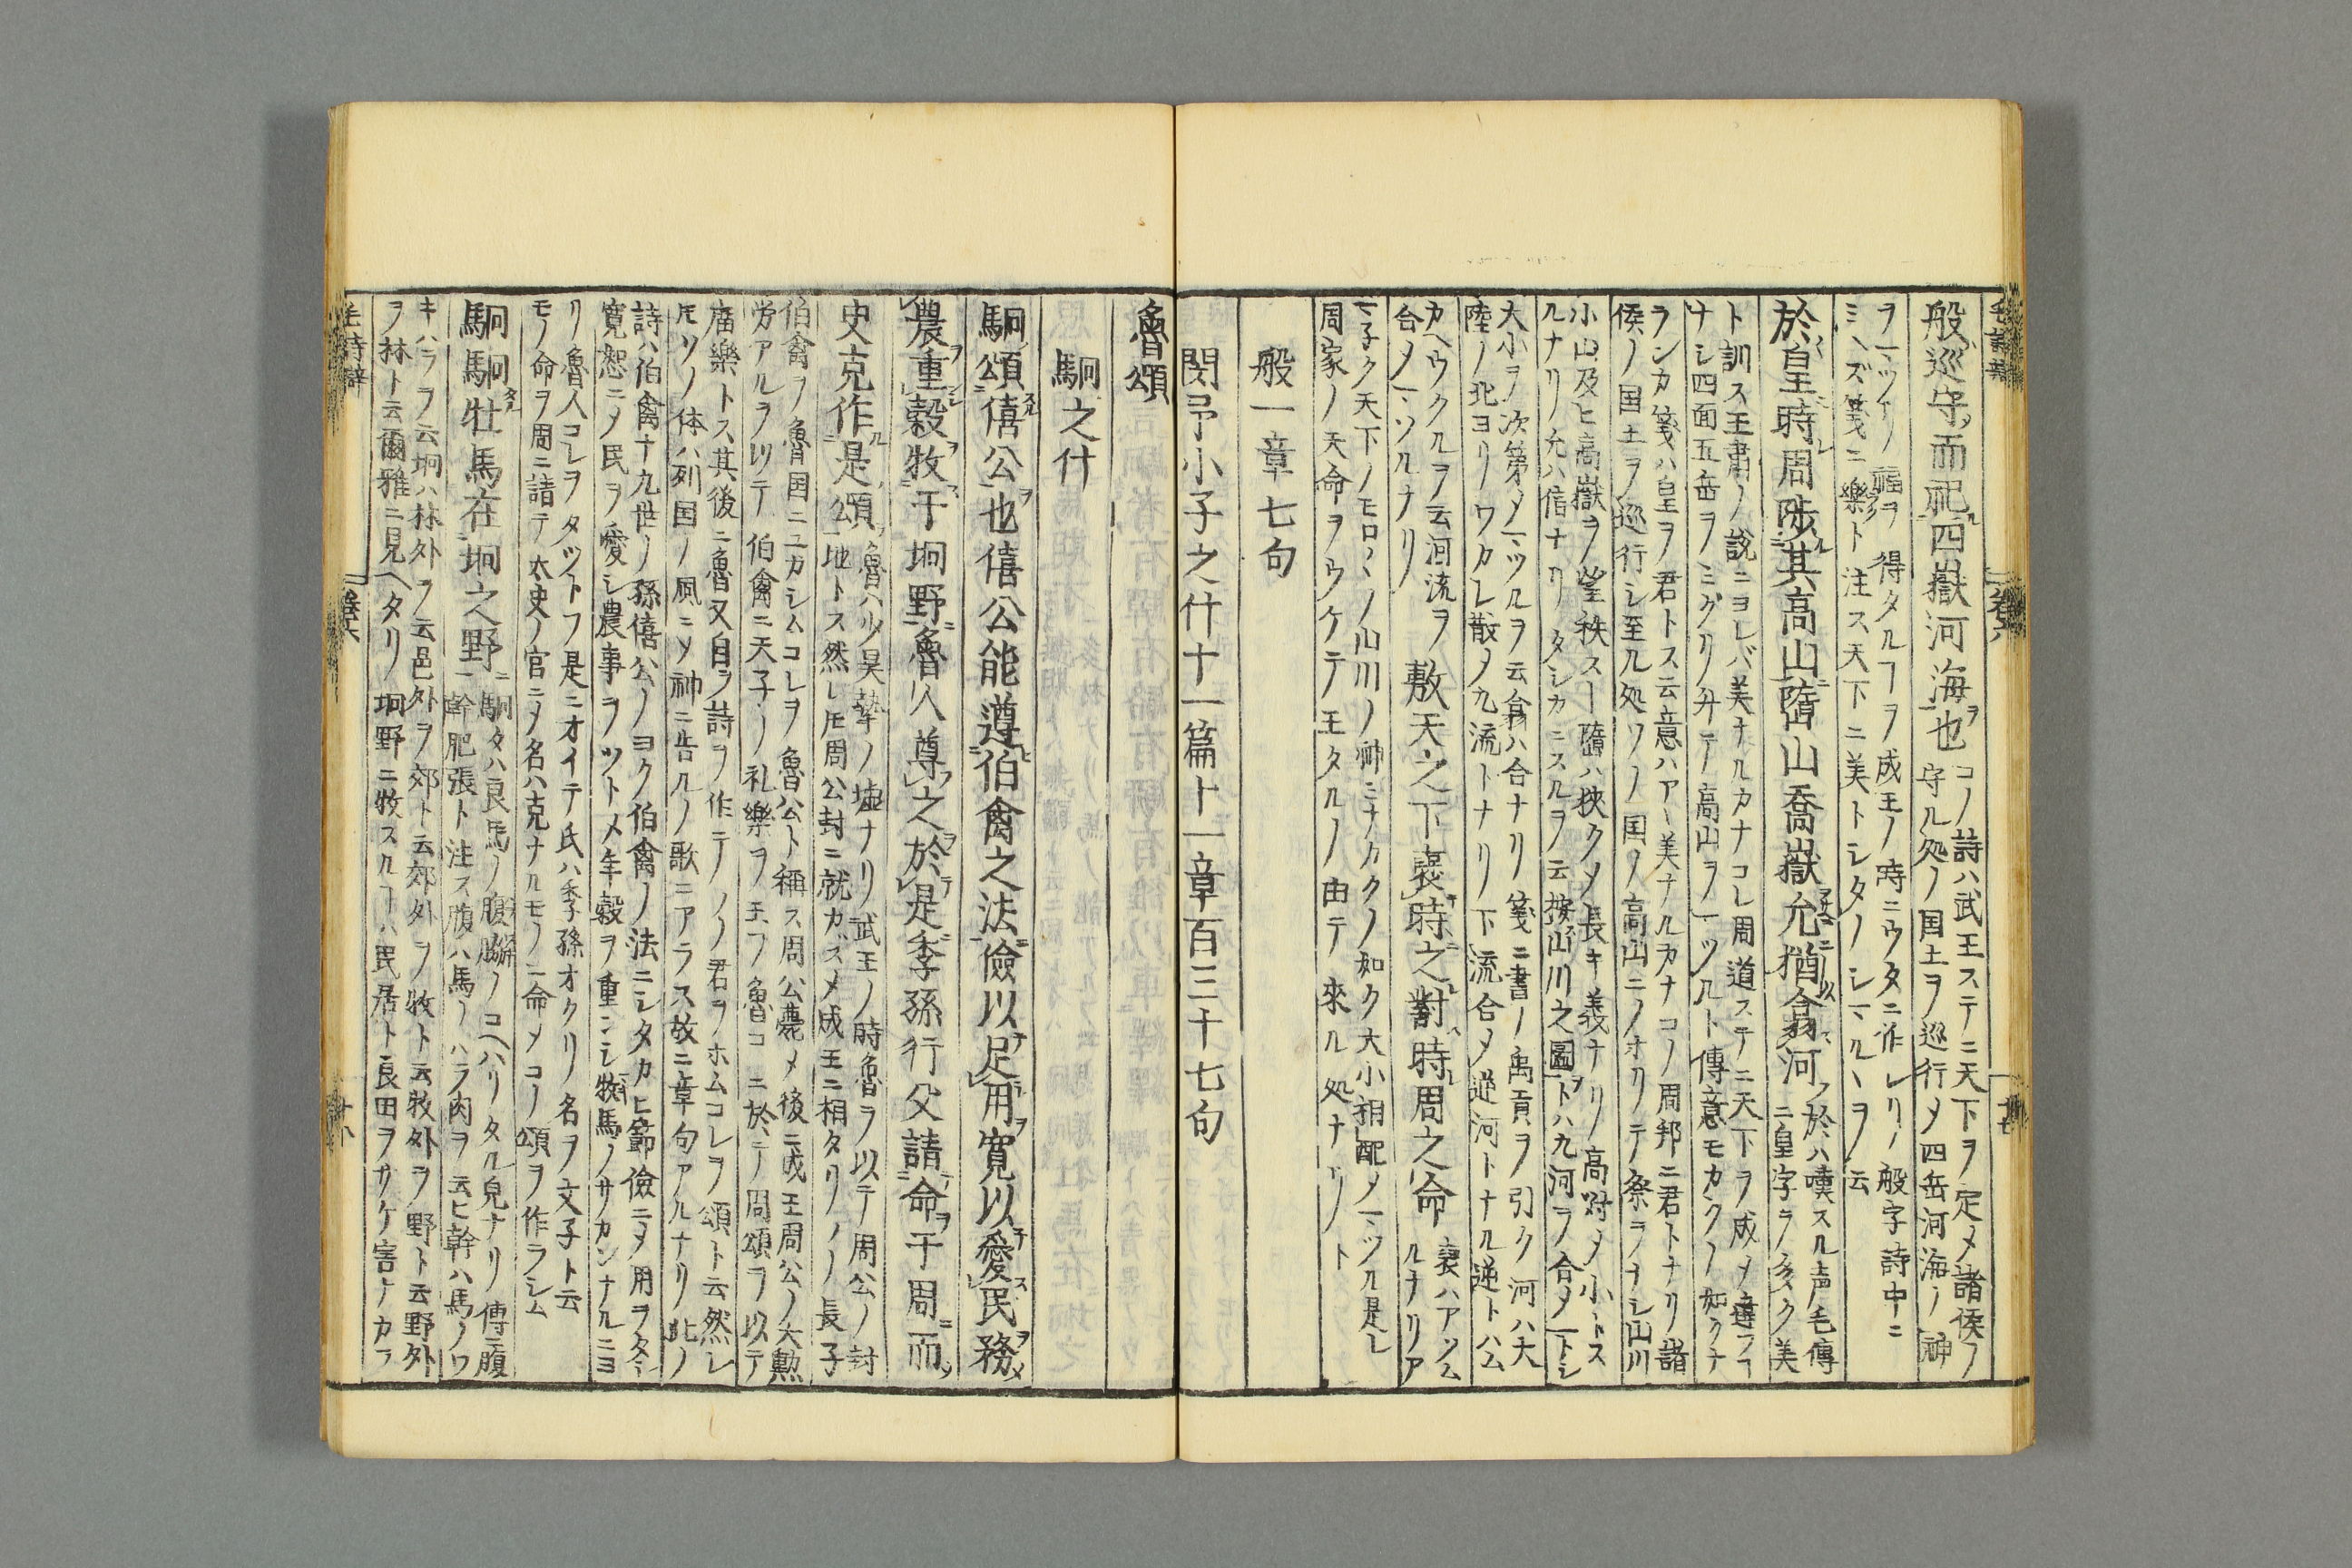 般巡守而祀四嶽河海也
コノ詩ハ武王ステニ天下ヲ定メ諸侯ノ
守ル処ノ国土ヲ巡行メ四岳河海ノ神
ヲマツリ福ヲ得タルヿヲ成王ノ時ニウタニ作レリ般字詩中ニ
ミヘズ箋ニ樂ト注ス天下ニ美トシタノシマルヽヲ云
於皇時周陟其高山嶞山喬嶽允猶翕河
於ハ嘆スル声毛傳
ニ皇字ヲ多ク美
ト訓ス王肅ノ説ニヨレバ美ナルカナコレ周道ステニ天下ヲ成メ
ナシ四面五岳ヲミグリ升テ高山ヲマツルト傳意モカクノ如クナ
ランカ箋ハ皇ヲ君トス云意ハアヽ美ナルカナコノ周邦ニ君トナリ諸
侯ノ国土ヲ巡行シ至ル処ソノ国ノ高山ニノホリテ祭ヲナシ山川
小山及ヒ高嶽ヲ望秩ス嶞ハ狹クメ長キ義ナリ
ルナリ允ハ信ナリタシカニスルヲ云按山川之圖ト九河ヲ合メ
大小ヲ次第メマツルヲ云翕ハ合ナリ箋ニ書ノ禹貢ヲ引ク河ハ大
陸ノ北ヨリワカレ散メ九流トナリ下流合メ逆河トナル逆トハ
カヘウクルヲ云河流ヲ
合メマツルナリ
敷天之下裒時之對時周之命
裒ハアツム
ルナリア
マネク天下ノモロヽノ山川ノ神ミナカクノ如ク大小相配メマツル是レ
周家ノ天命ヲウケテ王タルノ由テ來ル処ナリト
般一章七句
閔予小子之什十一篇十一章百三十七句
魯頌
駉之什
駉頌僖公也僖公能遵伯禽之法儉以足用寬以愛民務
農重穀牧于坰野魯人尊之於是季孫行父請命于周而
史克作是頌
魯ハ少昊摯ノ墟ナリ武王ノ時魯ヲ以テ周公ノ封
地トス然レ𪜈周公封ニ就カズメ成王ニ相タリソノ長子
伯禽ヲ魯国ニユカシムコレヲ魯公ト稱ス周公薨メ後ニ成王周公ノ大勲
労アルヲ以テ伯禽ニ天子ノ礼樂ヲ玉フ魯コヽニ於テ周頌ヲ以テ
廟樂トス其後ニ魯又自ラ詩ヲ作テソノ君ヲホムコレヲ頌ト云然レ
𪜈ソノ体ハ列国ノ風ニメ神ニ告ルノ歌ニアラス故ニ章句アルナリ此ノ
詩ハ伯禽十九世ノ孫僖公ノヨク伯禽ノ法ニシタカヒ節儉ニメ用ヲタシ
寛恕ニメ民ヲ愛シ農事ヲツトメ年穀ヲ重ンシ牧馬ノサカンナルニヨ
リ魯人コレヲタツトフ是ニオイテ氏ハ季孫オクリ名ヲ文子ト云
モノ命ヲ周ニ請テ太史ノ官ニメ名ハ克ナルモノニ命メコノ頌ヲ作ラシム
駉駉牡馬在坰之野
駉々ハ良馬ノ腹幹ノコヘハリタル皃ナリ傳ニ腹
幹肥張ト注ス腹ハ馬ノハラ肉ヲ云ヒ幹ハ馬ノワ
キハラヲ云坰ハ林外ヲ云邑外ヲ郊ト云郊外ヲ牧ト云牧外ヲ野ト云野外
ヲ林ト云爾雅ニ見ヘタリ坰野ニ牧スルヿハ民居ト良田ヲサケ害ナカラ